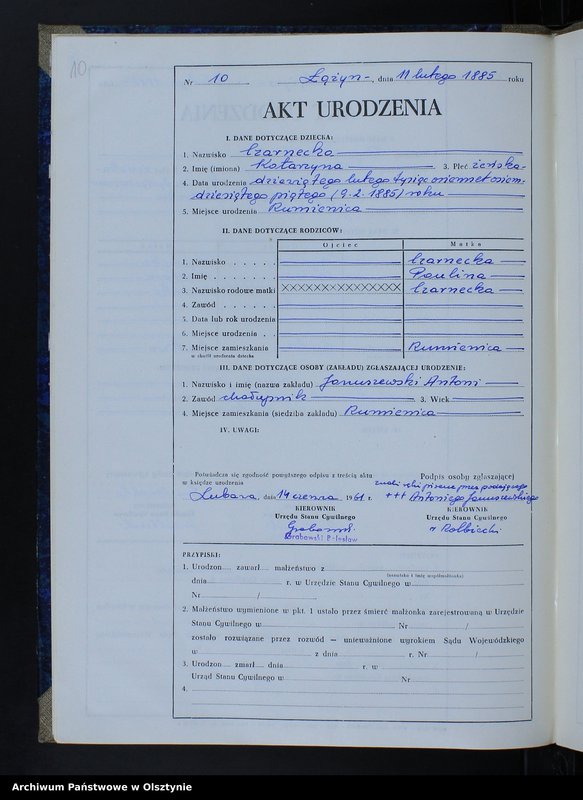 10
Nr 10 Łążyn, dnia 11 lutego 1885 roku
AKT URODZENIA
I. DANE DOTYCZĄCE DZIECKA:
1. Nazwisko Czarnecka
2. Imię (imiona) Katarzyna 3. Płeć żeńska
4. Data urodzenia dziewiątego lutego tysiąc osiemset osiem-
dziesiątego piątego (9.2.1885) roku
5. Miejsce urodzenia Rumienica
II. DANE DOTYCZĄCE RODZICÓW:
Ojciec Matka
1. Nazwisko Czarnecka
2. Imię Paulina
3. Nazwisko rodowe matki XXXXXXXXXXXXXXXX Czarnecka
4. Zawód
5. Data lub rok urodzenia
6. Miejsce urodzenia
7. Miejsce zamieszkania Rumienica
w chwili urodzenia dziecka
III. DANE DOTYCZĄCE OSOBY (ZAKŁADU) ZGŁASZAJĄCEJ URODZENIE:
1. Nazwisko i imię (nazwa zakładu) Januszewski Antoni
2. Zawód chałupnik 3. Wiek
4. Miejsce zamieszkania (siedziba zakładu) Rumienica
IV. UWAGI:
Poświadcza się zgodność powyższego odpisu z treścią aktu
w księdze urodzenia
Podpis osoby zgłaszającej
znaki ręki pisane przez podającego
Lubawa, dnia 14 czerwca 1961 r. +++ Antoniego Januszewskiego
KIEROWNIK KIEROWNIK
Urzędu Stanu Cywilnego Urzędu Stanu Cywilnego
Grabowski
Grabowski Bolesław
PRZYPISKI:
1. Urodzon zawarł małżeństwo z
(nazwisko i imię współmałżonka)
dnia r. w Urzędzie Stanu Cywilnego w
Nr /
2. Małżeństwo wymienione w pkt. 1 ustało przez śmierć małżonka zarejestrowaną w Urzędzie
Stanu Cywilnego w Nr /
zostało rozwiązane przez rozwód — unieważnione wyrokiem Sądu Wojewódzkiego
w z dnia r. Nr /
3. Urodzon zmarł dnia r. w
Urząd Stanu Cywilnego w Nr
4.
Archiwum Państwowe w Olsztynie